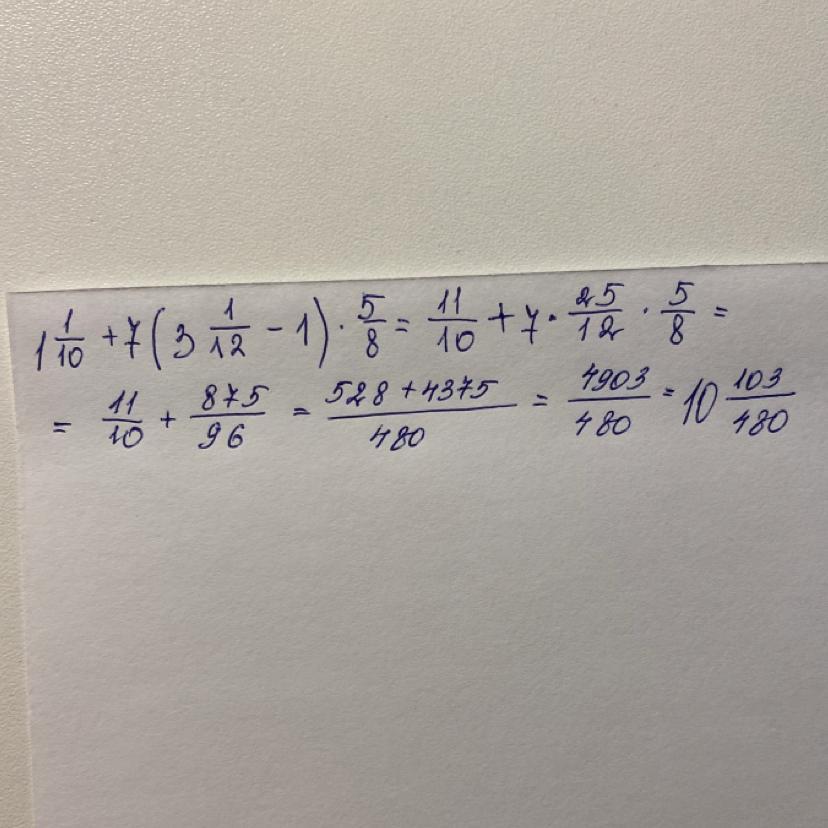 1 1/10 + 7(3 1/12 - 1) · 5/8 = 11/10 + 7 · 25/12 · 5/8 =
= 11/10 + 875/96 = (528 + 4375)/480 = 4903/480 = 10 103/480